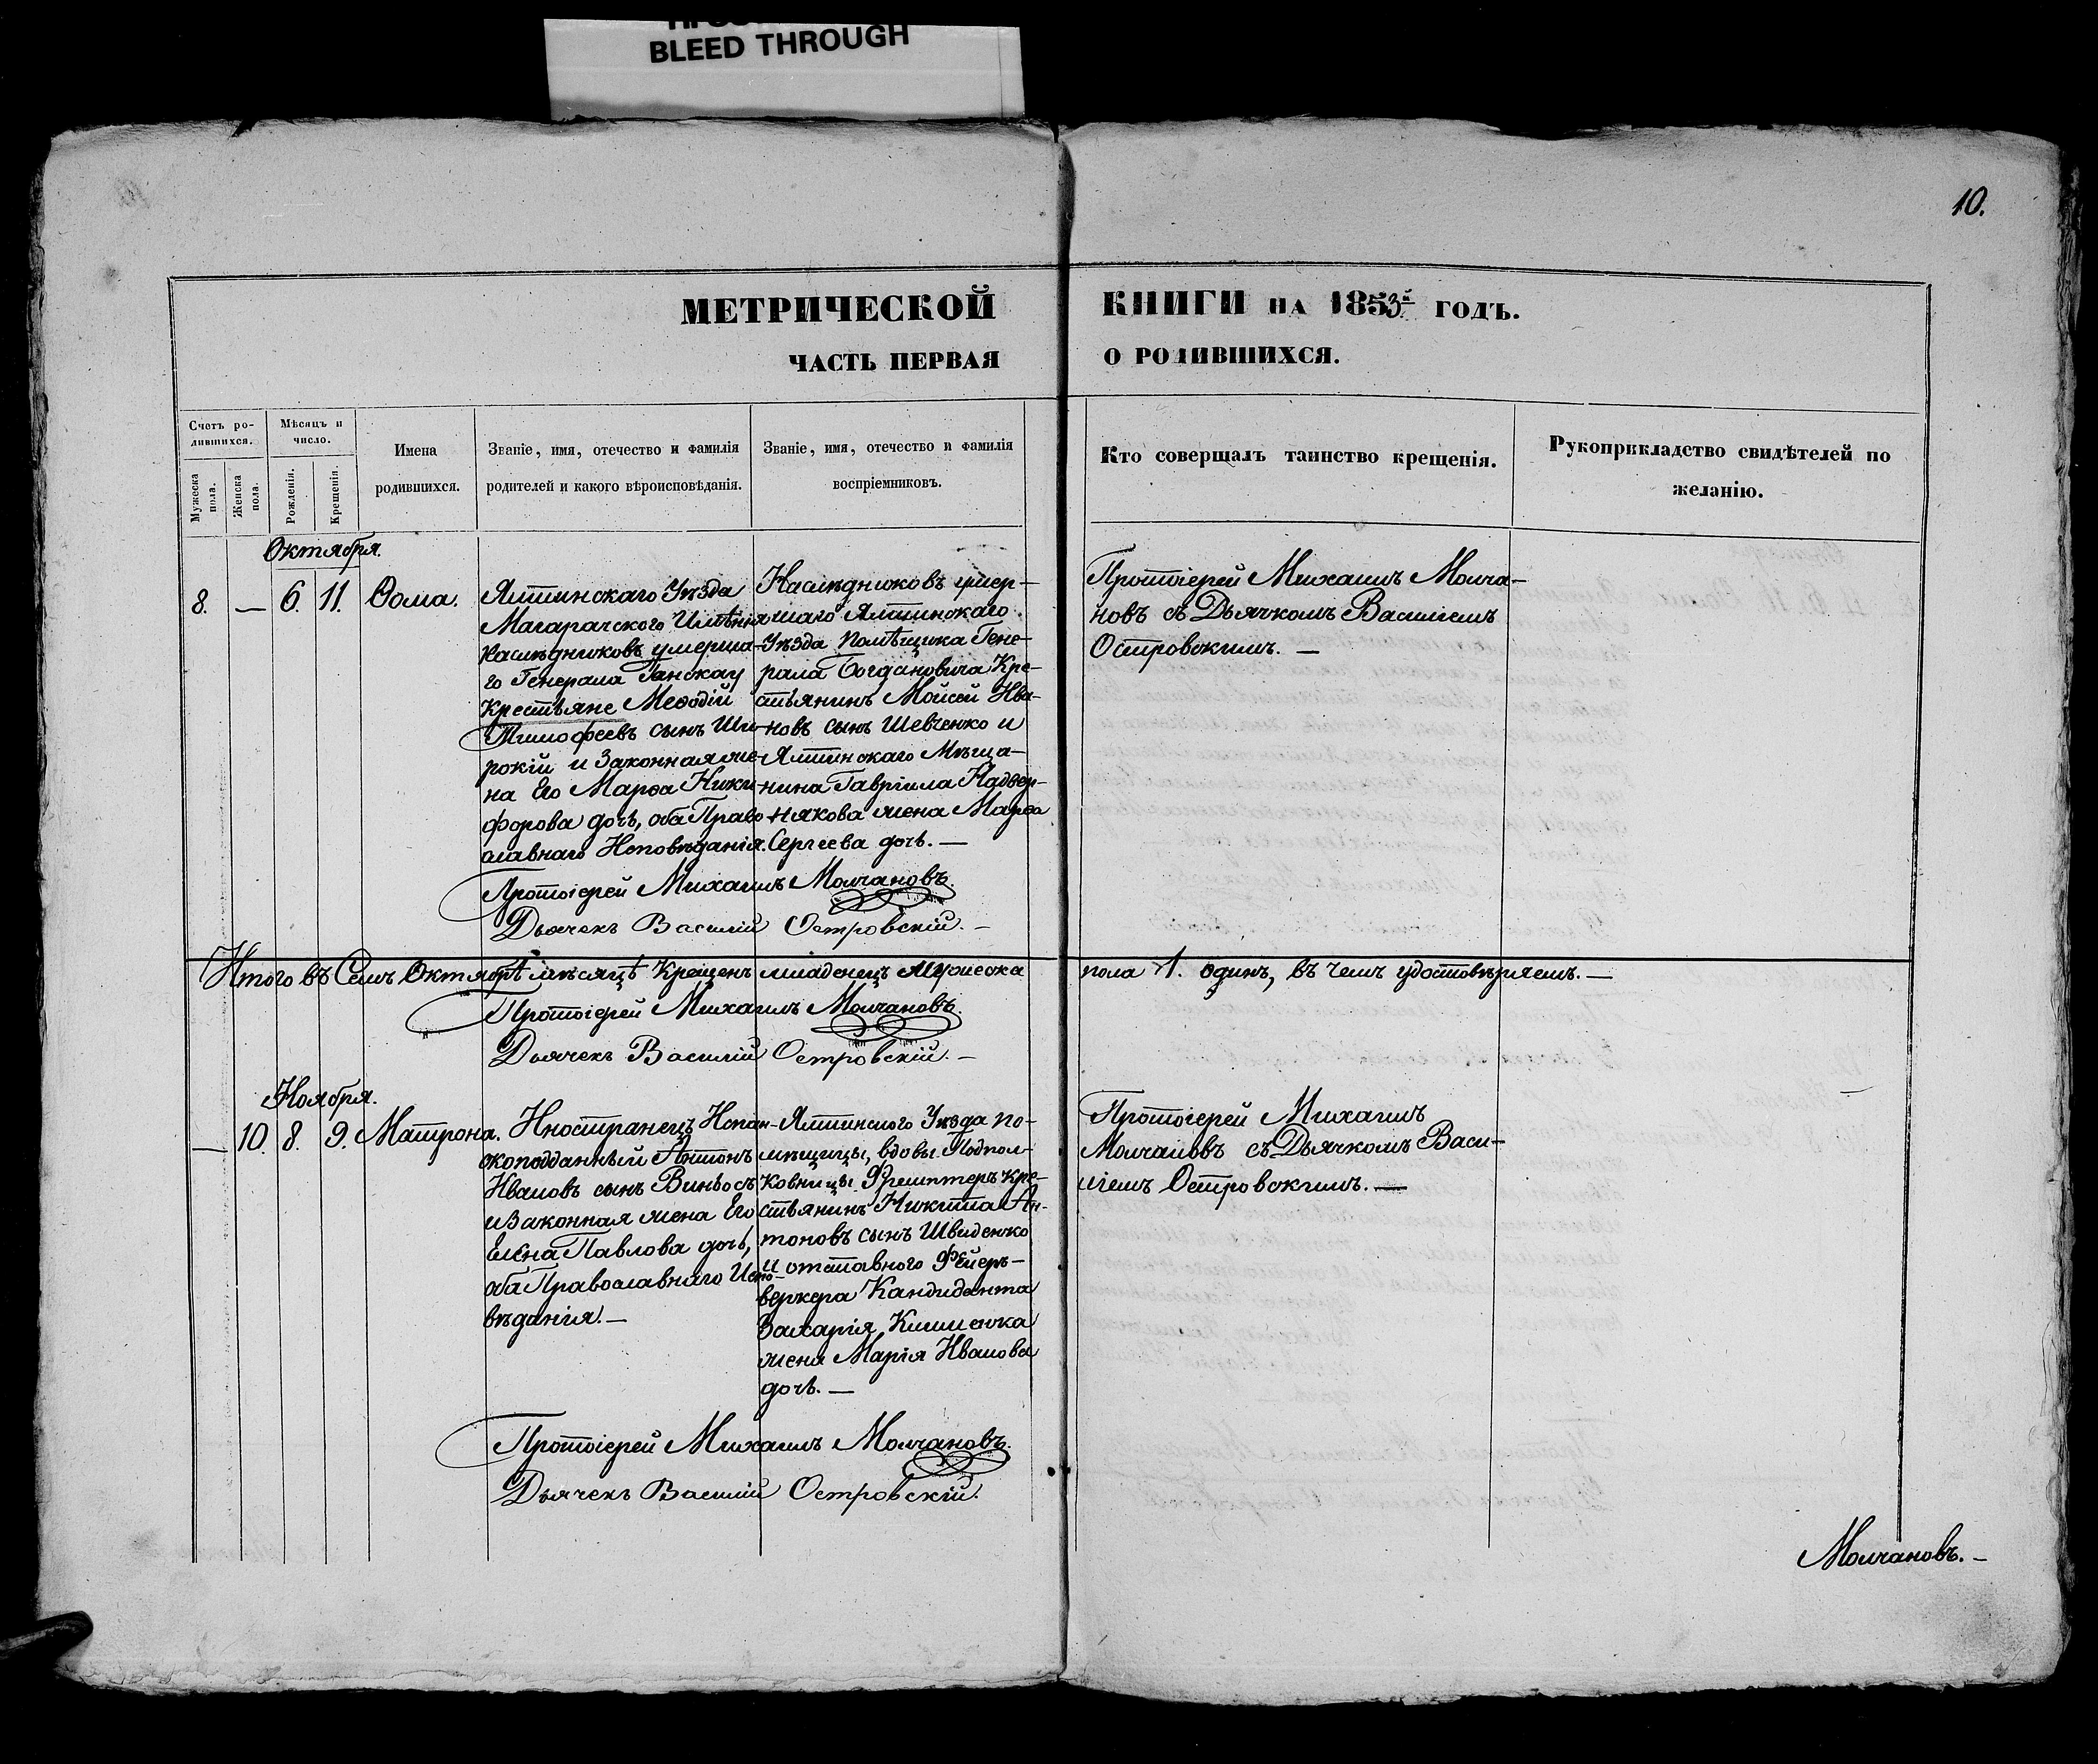 BLEED THROUGH
10.
МЕТРИЧЕСКОЙ КНИГИ НА 1853й ГОДЪ.
ЧАСТЬ ПЕРВАЯ О РОДИВШИХСЯ.
Счетъ ро-
дившихся.
Мужеска пола.
Женска пола.
Мѣсяцъ и
число.
Рожденія.
Крещенія.
Имена
родившихся.
Званіе, имя, отечество и фамилія
родителей и какого вѣроисповѣданія.
Званіе, имя, отечество и фамилія
воспріемниковъ.
Кто совершалъ таинство крещенія.
Рукоприкладство свидѣтелей по
желанію.
Октября.
8. — 6. 11. Ѳома.
Ялтинскаго Уѣзда
Магарачского Имѣнія
наслѣдниковъ умерша-
го Генерала Ганскау
Крестьяне Меѳодій
Тимофеевъ сынъ Ши-
рокій и Законная же-
на Его Марѳа Ники-
форова дочь, оба Право-
славнаго Исповѣданія.
Наслѣдниковъ умер-
шаго Ялтинскаго
Уѣзда Помѣщика Гене-
рала Богдановича Кре-
стьянинъ Мойсей Ива-
новъ сынъ Шевченко и
Ялтинскаго Мѣща-
нина Гавріила Надвер-
някова жена Марѳа
Сергѣева дочь. —
Протоіерей Михаилъ Молча-
новъ съ Дьячкомъ Василіемъ
Островскимъ. —
Протоіерей Михаилъ Молчановъ.
Дьячекъ Василій Островскій. —
Итого въ Семъ Октябрѣ мѣсяцѣ Крещенъ младенецъ Мужеска пола 1. одинъ, въ чемъ удостовѣряемъ. —
Протоіерей Михаилъ Молчановъ.
Дьячекъ Василій Островскій. —
Ноября.
— 10. 8. 9. Матрона.
Иностранецъ Испан-
скоподданный Антонъ
Ивановъ сынъ Виньосъ
и Законная жена Его
Елена Павлова дочь,
оба Православнаго Испо-
вѣданія. —
Ялтинского Уѣзда по-
мѣщицы, вдовы Подпол-
ковницы Фрешптеръ Кре-
стьянинъ Никита Ан-
тоновъ сынъ Швиденко
и отставного Фейер-
веркера Кандидента
Захарія Кишенка
жена Марія Иванова
дочь. —
Протоіерей Михаилъ
Молчановъ съ Дьячкомъ Васи-
ліемъ Островскимъ. —
Протоіерей Михаилъ Молчановъ.
Дьячекъ Василій Островскій.
Молчановъ. —